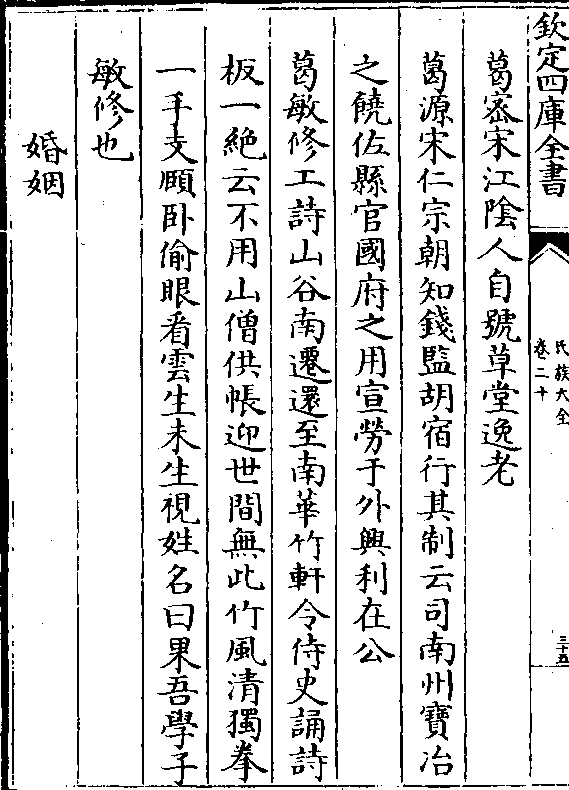 欽定四庫全書
氏族大全
卷二十
三十五
葛宻宋江隂人自號草堂逸老
葛源宋仁宗朝知錢監胡宿行其制云司南州寶冶
之饒佐縣官國府之用宣勞于外興利在公
葛敏修工詩山谷南遷還至南華竹軒令侍史誦詩
板一絶云不用山僧供帳迎世間無此竹風清獨拳
一手支頥卧偷眼看雲生未生視姓名曰果吾學子
敏修也
婚姻